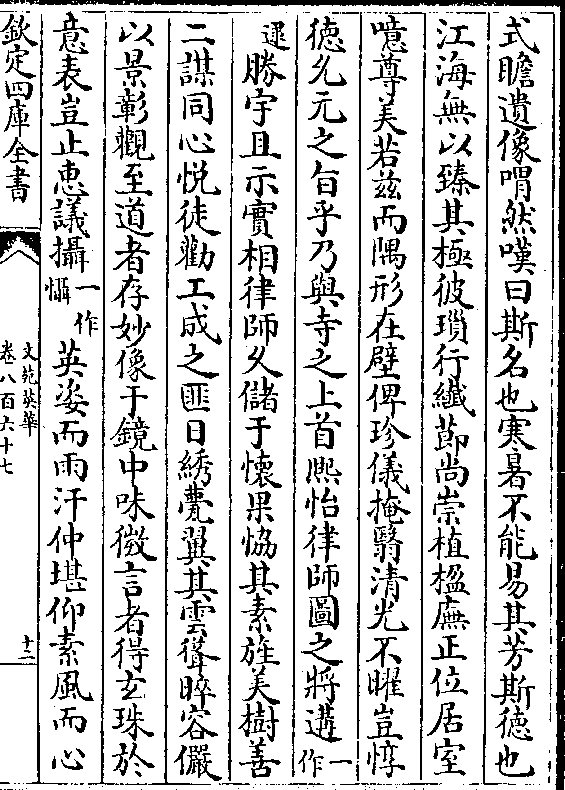 式瞻遺像喟然嘆曰斯名也寒暑不能易其芳斯徳也
江海無以臻其極彼瑣行纖節尚崇植楹廡正位居室
噫尊美若兹而隅形在壁俾珍儀掩翳清光不曜豈惇
徳允元之旨乎乃與寺之上首熈怡律師圖之將遘一作
逮勝宇且示實相律師乆儲于懷果恊其素旌美樹善
二謀同心悦徒勸工成之匪日綉甍翼其雲聳睟容儼
以景彰觀至道者存妙像于鏡中味微言者得玄珠於
意表豈止恵議攝一作懾英姿而雨汗仲堪仰素風而心
欽定四庫全書
文苑英華
卷八百六十七
十二